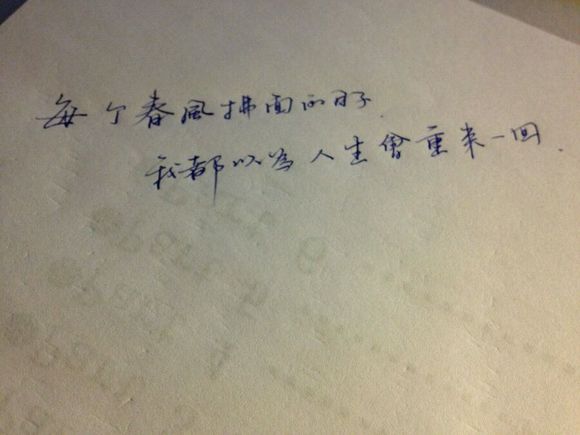 每个春風拂面的日子.
我都以為人生會重来一回.